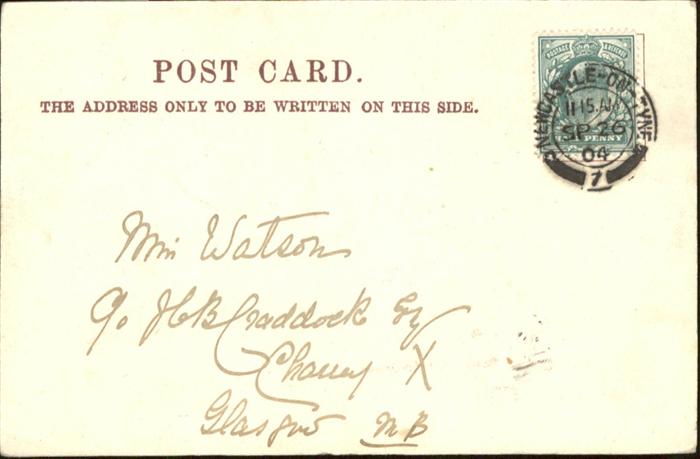 POST CARD.
THE ADDRESS ONLY TO BE WRITTEN ON THIS SIDE.
POSTAGE & REVENUE
HALF PENNY
NEWCASTLE-ON-TYNE
11 15 AM
SP 26
04
7
Miss Watson
c/o J C B Craddock Esq
Charing X
Glasgow NB